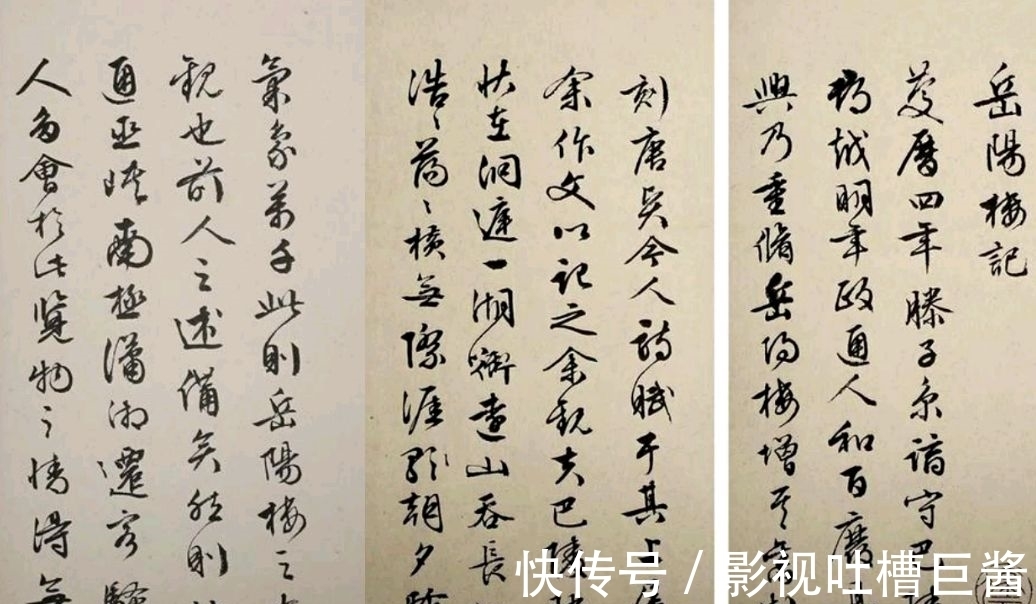 岳陽楼記
慶曆四年滕子京謫守巴陵
郡越明年政通人和百廢具
興乃重脩岳陽樓增其舊制
刻唐賢今人詩賦于其上屬
余作文以記之余觀夫巴陵勝
狀在洞庭一湖銜遠山吞長
浩〻蕩〻橫無際涯朝夕陰
氣象萬千此則岳陽樓之大
觀也前人之述備矣然則
通巫峽南極瀟湘遷客騷
人多會於此覽物之情得無
快传号 / 影视吐槽巨酱